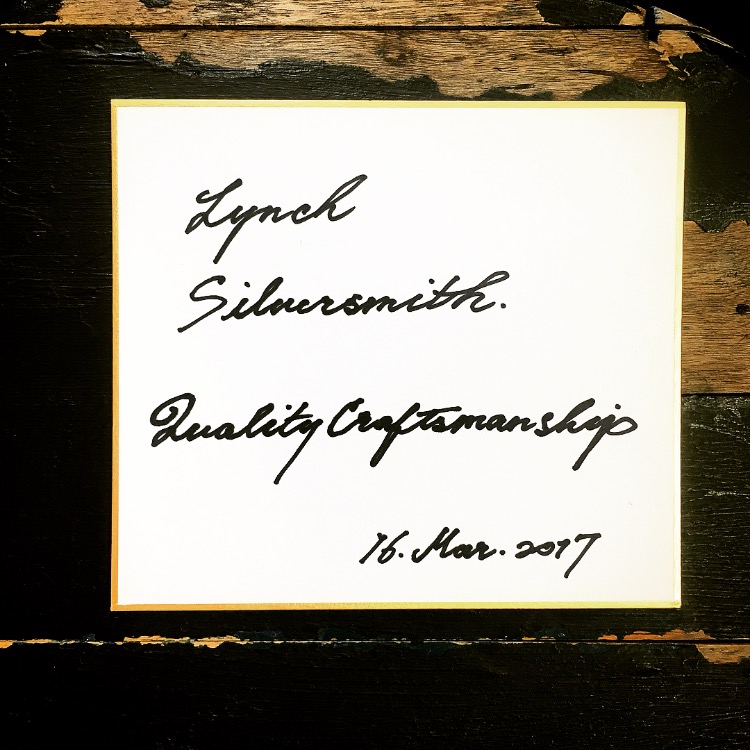 Lynch
Silversmith.
Quality Craftsmanship
16. Mar. 2017